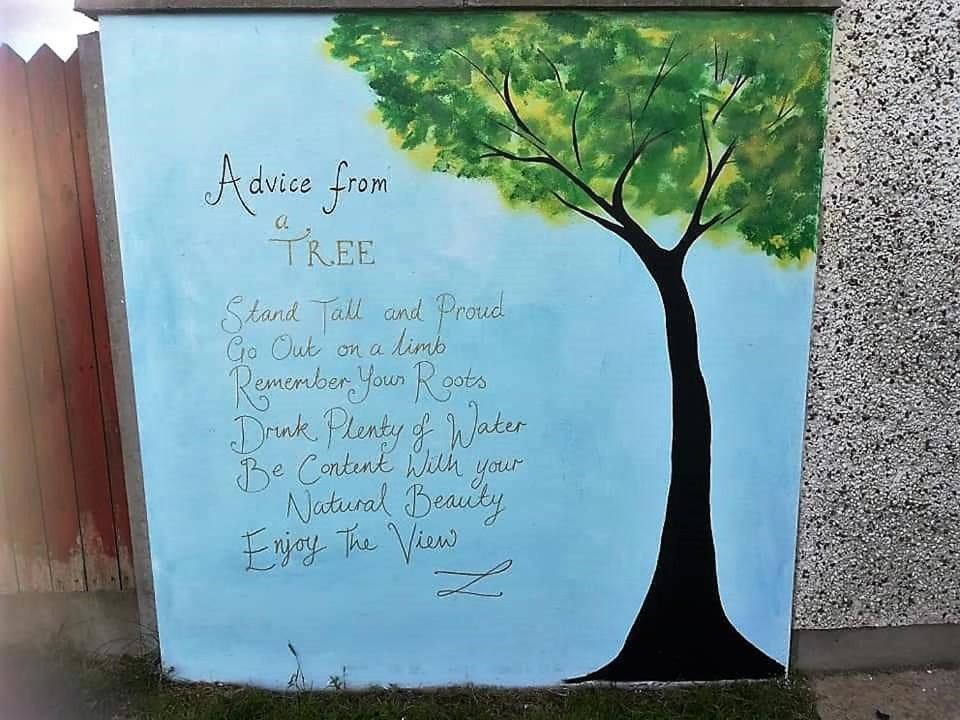 Advice from
a
TREE
Stand Tall and Proud
Go Out on a limb
Remember Your Roots
Drink Plenty of Water
Be Content With your
Natural Beauty
Enjoy The View
L